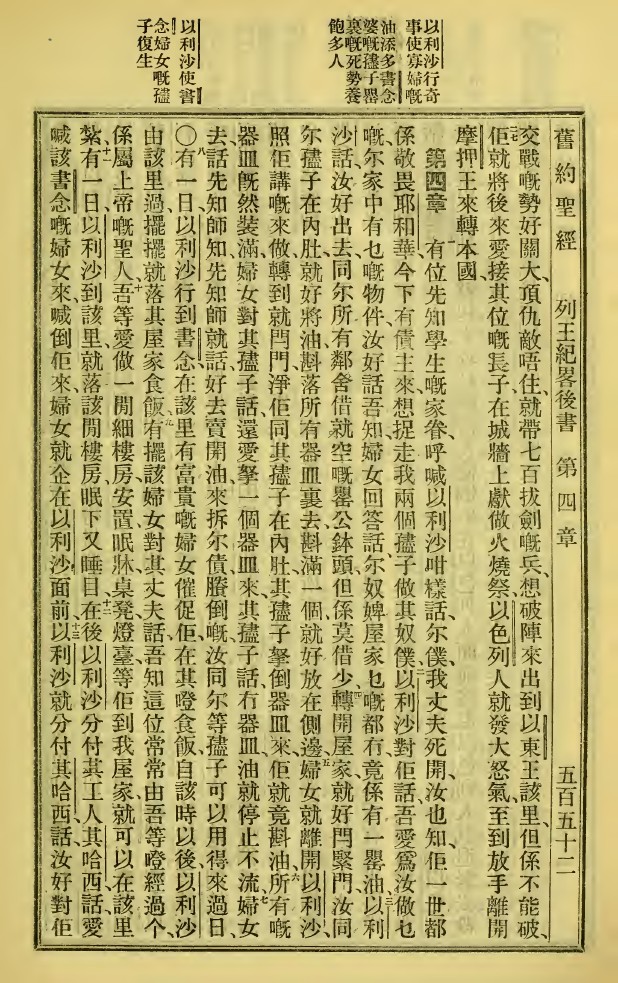 以利沙行奇
事使寡婦嘅
油添多書念
婆嘅孻子罌
裏嘅死勢養
飽多人
以利沙使書
念婦女嘅孻
子復生
舊約聖經 列王紀畧後書 第四章 五百五十二
交戰嘅勢好關大、頂仇敵唔住、就帶七百拔劍嘅兵、想破陣來出到以東王該里、但係不能破、
佢就將後來愛接其位嘅長子、在城牆上獻做火燒祭、以色列人就發大怒氣、至到放手離開
摩押王來轉本國、
第四章 有位先知學生嘅家眷、呼喊以利沙咁樣話、尔僕我丈夫死開、汝也知佢一世都
係敬畏耶和華、今下有債主來、想捉走我兩個孻子做其奴僕、以利沙對佢話、吾愛爲汝做乜
嘅、尔家中有乜嘅物件、汝好話吾知、婦女回答話、尔奴婢屋家乜嘅都冇、竟係有一罌油、以利
沙話、汝好出去、同尔所有鄰舍、借就空嘅罌公鉢頭、但係莫借少、轉開屋家、就好閂緊門、汝同
尔孻子在內肚、就好將油斟落所有器皿裏去、斟滿一個、就好放在側邊、婦女就離開以利沙、
照佢講嘅來做、轉到就閂門、淨佢同其孻子在內肚、其孻子拏倒器皿來、佢就竟斟油、所有嘅
器皿旣然裝滿、婦女對其孻子話、還愛拏一個器皿來、其孻子話、冇器皿、油就停止不流、婦女
去話先知師知、先知師就話、好去賣開油來拆尔債、賸倒嘅、汝同尔等孻子可以用得來過日、
〇有一日以利沙行到書念、在該里有富貴嘅婦女、催促佢在其嶝食飯、自該時以後、以利沙
由該里過擺擺、就落其屋家食飯、有擺該婦女對其丈夫話、吾知這位常常由吾等嶝經過个、
係屬上帝嘅聖人、吾等愛做一間細樓房、安置眠牀桌凳燈臺等、佢到我屋家、就可以在該里
紮、有一日以利沙到該里、就落該間樓房眠下又睡目、在後以利沙分付其工人其哈西話、愛
喊該書念嘅婦女來、喊倒佢來、婦女就企在以利沙面前、以利沙就分付其哈西話、汝好對佢